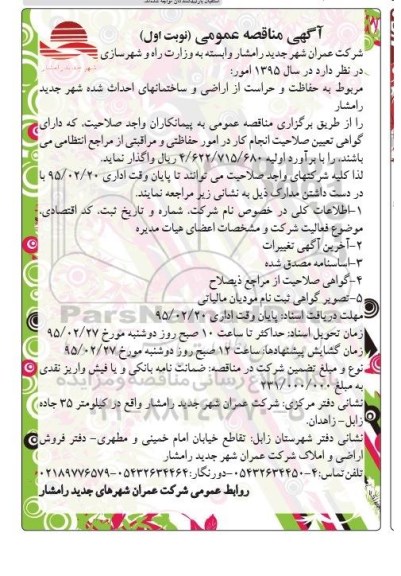 آگهی مناقصه عمومی (نوبت اول)
شرکت عمران شهر جدید رامشار وابسته به وزارت راه و شهرسازی
در نظر دارد در سال ۱۳۹۵ امور:
شهر جدید رامشار
مربوط به حفاظت و حراست از اراضی و ساختمانهای احداث شده شهر جدید
رامشار
را از طریق برگزاری مناقصه عمومی به پیمانکاران واجد صلاحیت، که دارای
گواهی تعیین صلاحیت انجام کار در امور حفاظتی و مراقبتی از مراجع انتظامی می
باشند، را با برآورد اولیه ۴/۶۲۲/۷۱۵/۶۸۰ ریال واگذار نماید.
لذا کلیه شرکتهای واجد صلاحیت می توانند تا پایان وقت اداری ۹۵/۰۲/۲۰ با
در دست داشتن مدارک ذیل به نشانی زیر مراجعه نمایند.
۱-اطلاعات کلی در خصوص نام شرکت، شماره و تاریخ ثبت، کد اقتصادی،
موضوع فعالیت شرکت و مشخصات اعضای هیات مدیره
۲-آخرین آگهی تغییرات
۳-اساسنامه مصدق شده
۴-گواهی صلاحیت از مراجع ذیصلاح
۵-تصویر گواهی ثبت نام مودیان مالیاتی
مهلت دریافت اسناد: پایان وقت اداری ۹۵/۰۲/۲۰
زمان تحویل اسناد: حداکثر تا ساعت ۱۰ صبح روز دوشنبه مورخ ۹۵/۰۲/۲۷
زمان گشایش پیشنهادها: ساعت ۱۲ صبح روز دوشنبه مورخ ۹۵/۰۲/۲۷
نوع و مبلغ تضمین شرکت در مناقصه: ضمانت نامه بانکی و یا فیش واریز نقدی
به مبلغ ۲۳۱/۰۰۰/۰۰۰
نشانی دفتر مرکزی: شرکت عمران شهر جدید رامشار واقع در کیلومتر ۳۵ جاده
زابل- زاهدان.
نشانی دفتر شهرستان زابل: تقاطع خیابان امام خمینی و مطهری- دفتر فروش
اراضی و املاک شرکت عمران شهر جدید رامشار
تلفن تماس:۴-۰۵۴۳۲۶۳۴۴۵۰-دورنگار:۰۵۴۳۲۶۳۴۴۶۴-۰۲۱۸۹۷۷۶۵۷۹
روابط عمومی شرکت عمران شهرهای جدید رامشار